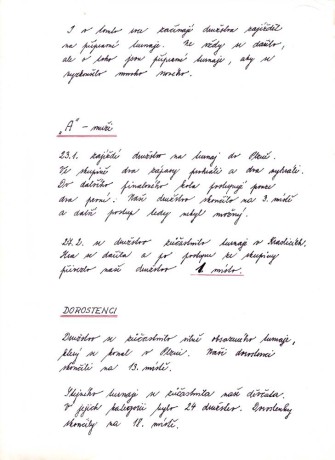 I v tomto roce začínají družstva zajíždět
na přípravné turnaje. Ne vždy se dařilo,
ale o toho jsou přípravné turnaje, aby se
vyzkoušelo mnoho nového.
„A" - muži
23.1. zajíždí družstvo na turnaj do Plzně.
Ve skupině dva zápasy prohráli a dva vyhráli.
Do dalšího finálového kola postupují pouze
dva první. Naše družstvo skončilo na 3. místě
a další postup tedy nebyl možný.
27.2. se družstvo zúčastnilo turnaje v Hradicích.
Hra se dařila a po postupu ze skupiny
přivezlo naše družstvo 1. místo.
DOROSTENCI
Družstvo se zúčastnilo silně obsazeného turnaje,
který se konal v Plzni. Naši dorostenci
skončili na 13. místě.
Stejného turnaje se zúčastnila naše děvčata.
V jejich kategorii bylo 24 družstev. Dorostenky
skončily na 18. místě.